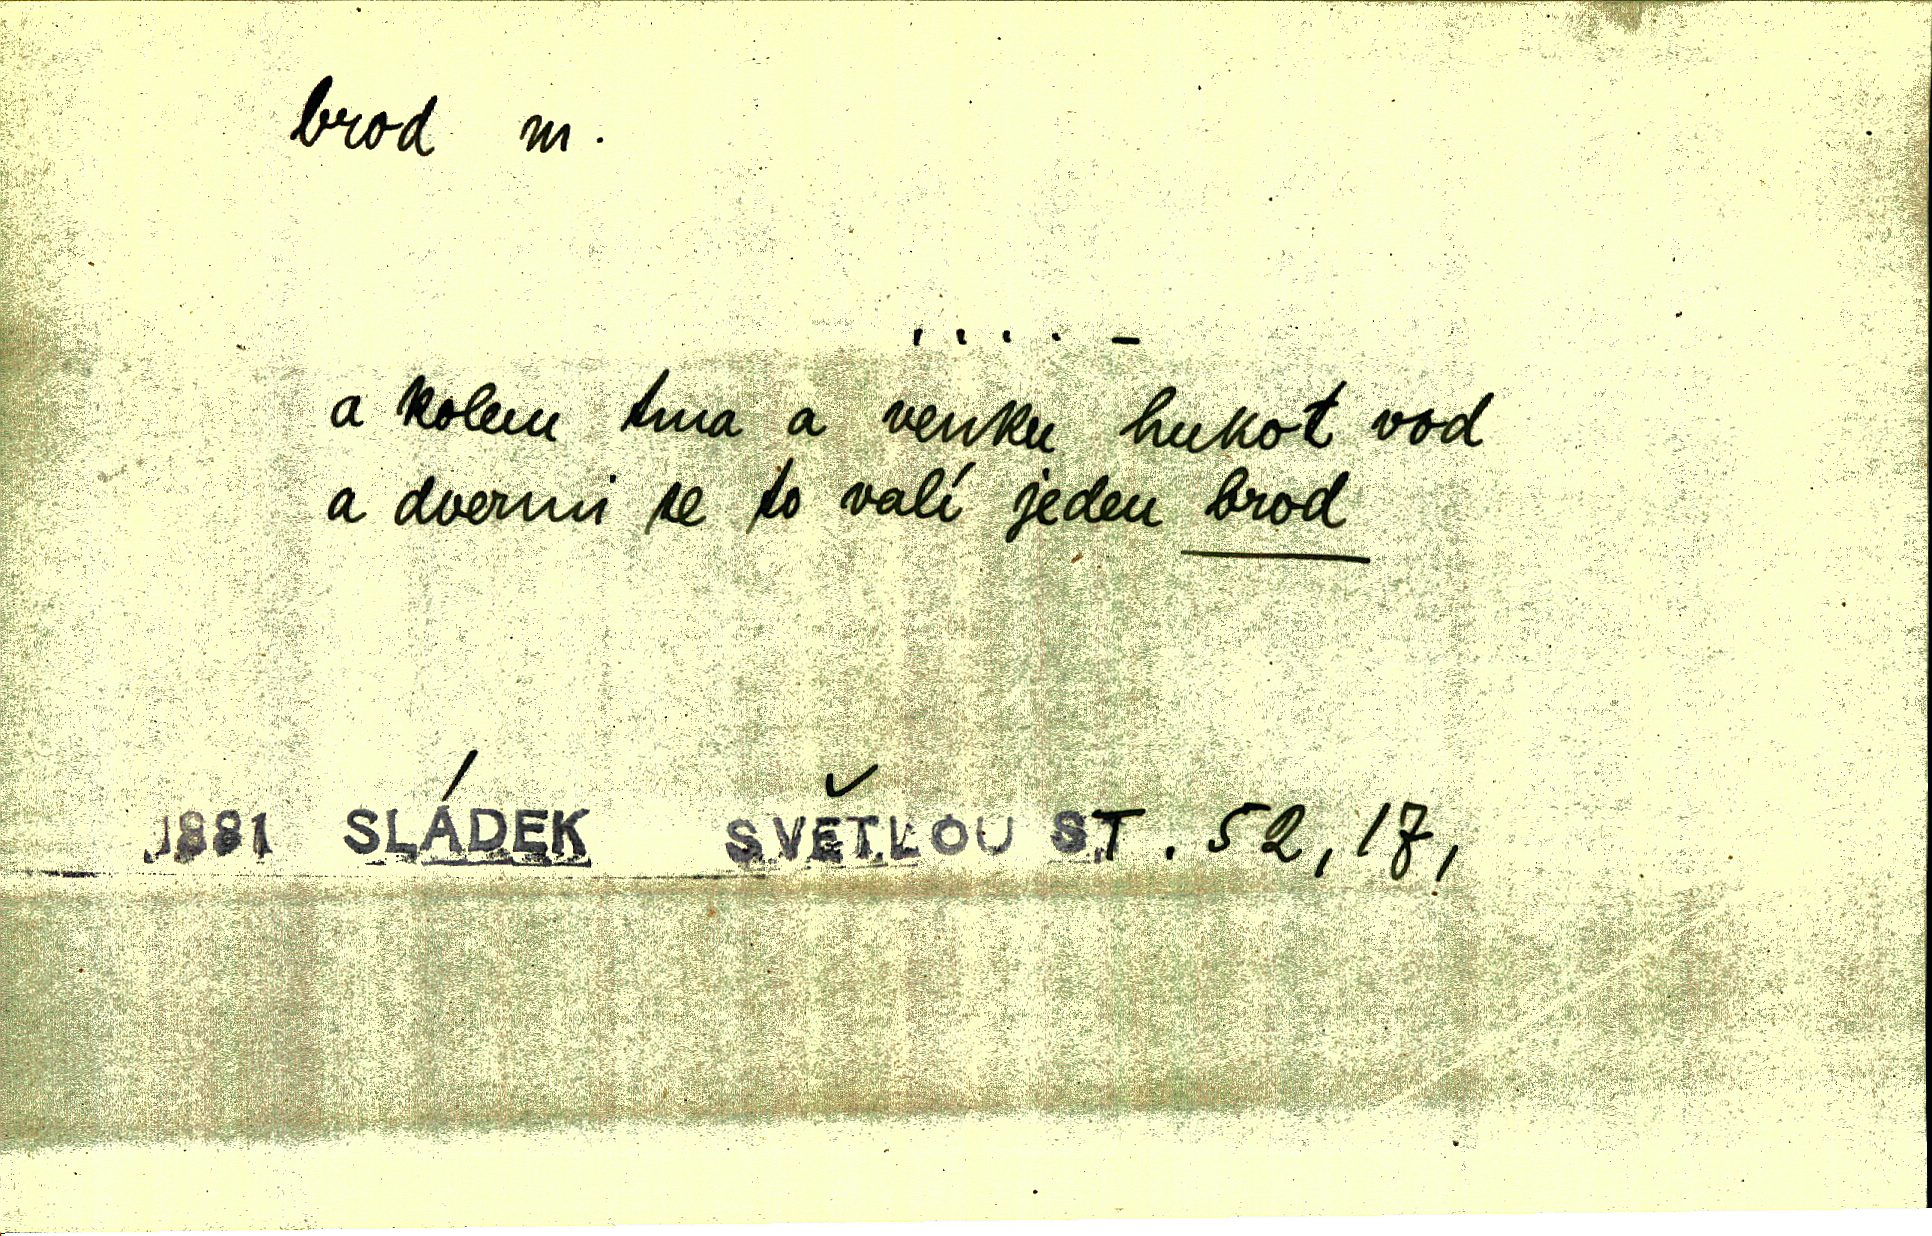 brod m.
. . . . –
a kolem tma a venku hukot vod
a dvermi se to valí jeden brod
1881 SLÁDEK SVĚTLOU ST. 52, 17,